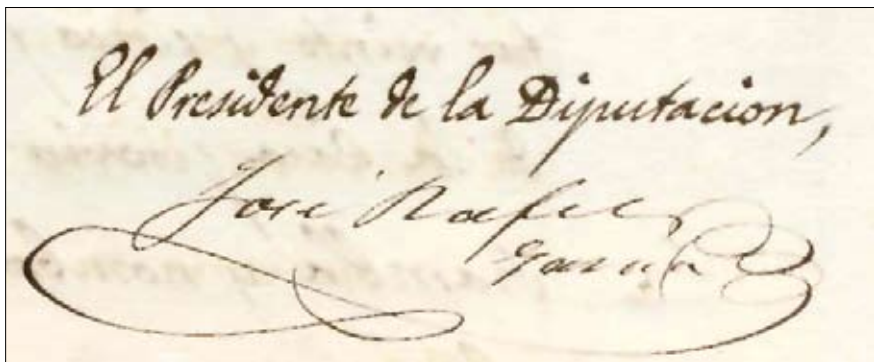 El Presidente de la Diputacion,
José Rafael
García